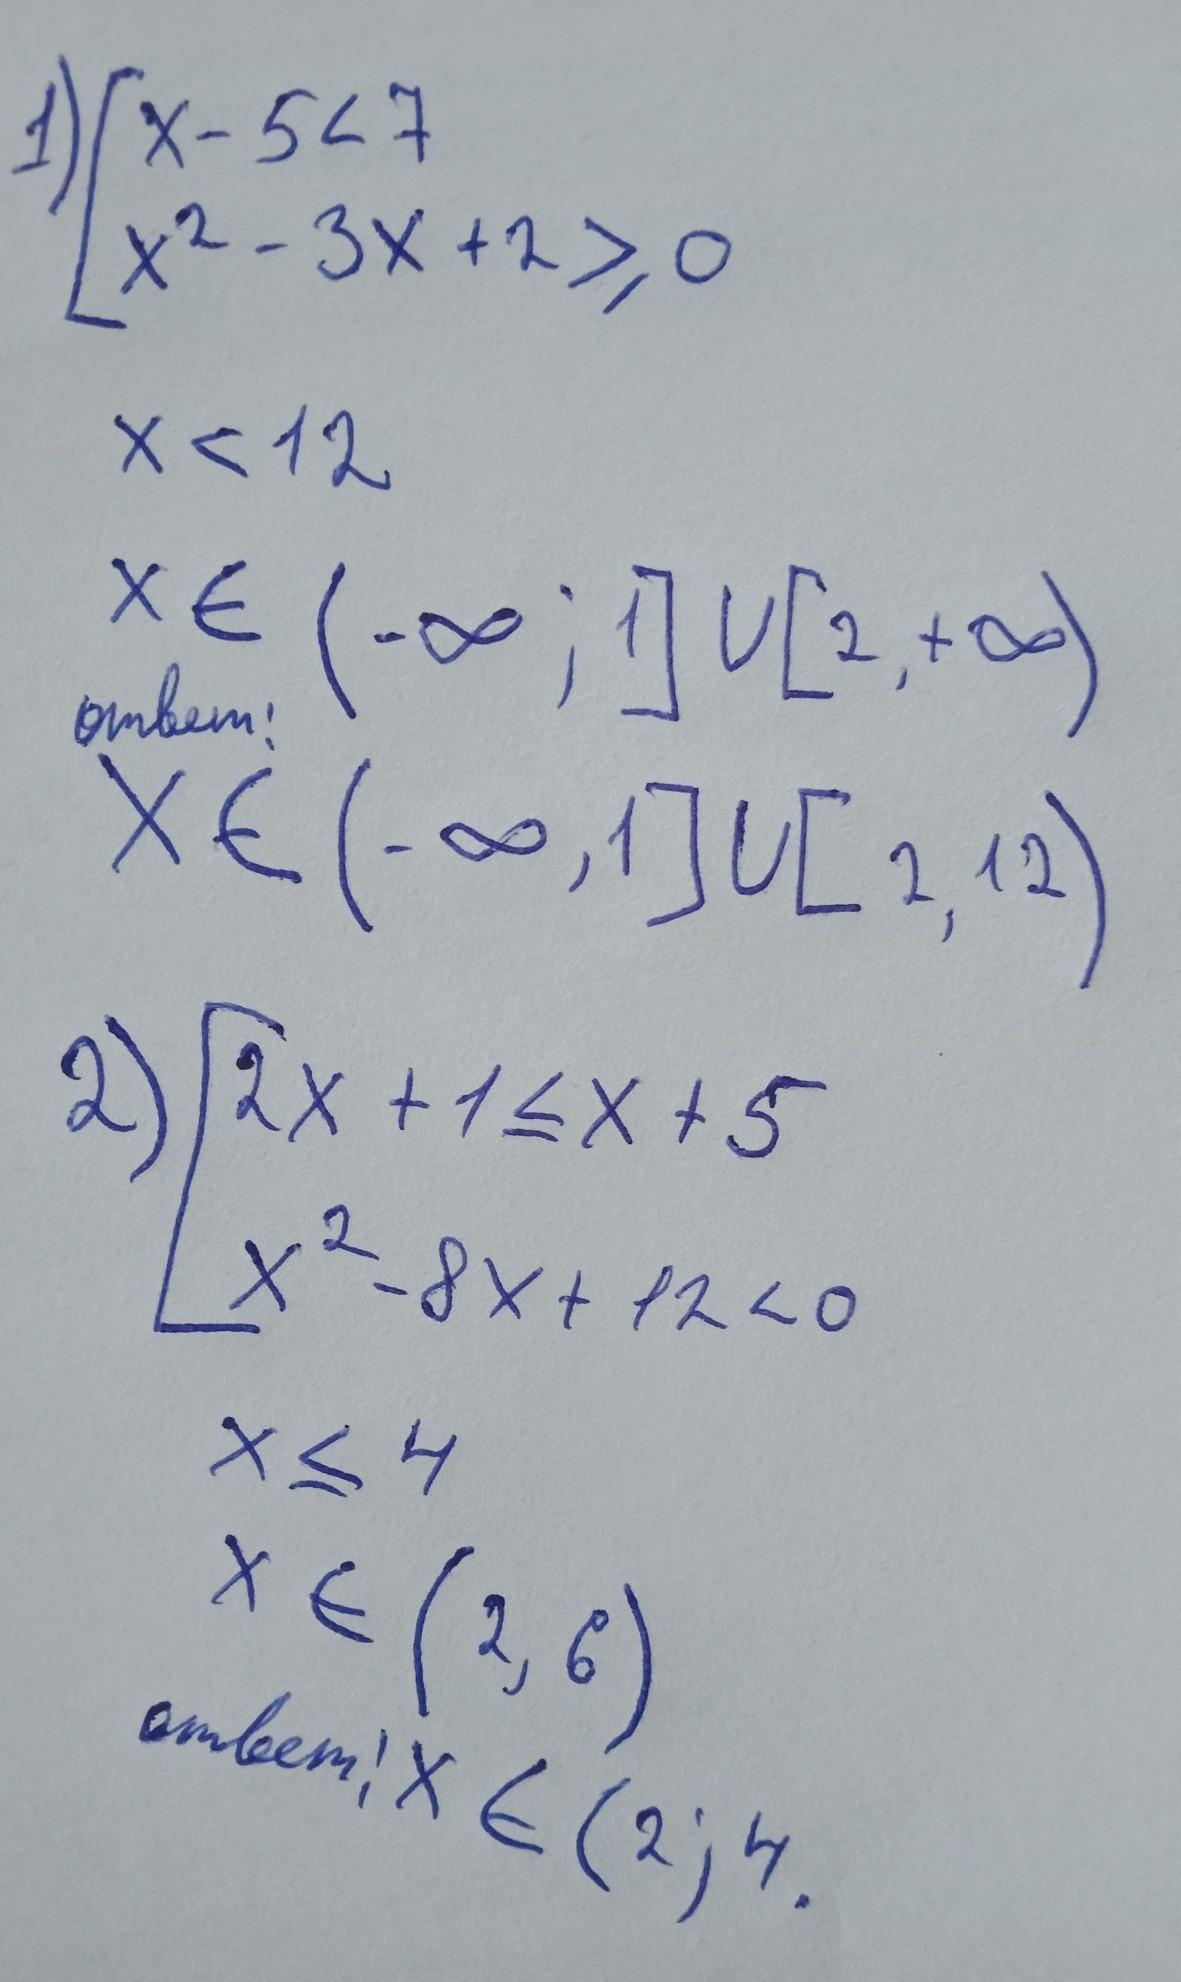 1) [ x - 5 < 7
x² - 3x + 2 ⩾ 0
x < 12
x ∈ (-∞; 1] ∪ [2, +∞)
ответ:
X ∈ (-∞, 1] ∪ [2, 12)
2) [ 2x + 1 ≤ x + 5
x² - 8x + 12 < 0
x ≤ 4
x ∈ (2, 6)
ответ: x ∈ (2; 4.